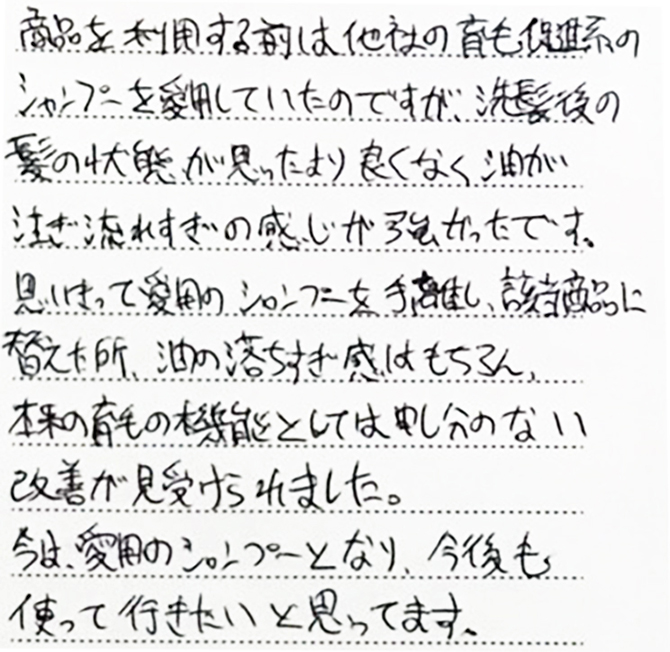 商品を利用する前は他社の育毛促進系の
シャンプーを愛用していたのですが、洗髪後の
髪の状態が思ったより良くなく油が
注ぎ流れすぎの感じが強かったです。
思いきって愛用のシャンプーを手離し、該当商品に
替えた所、油の落ちすぎ感はもちろん、
本来の育毛の機能としては申し分のない
改善が見受けられました。
今は、愛用のシャンプーとなり、今後も
使って行きたいと思ってます。